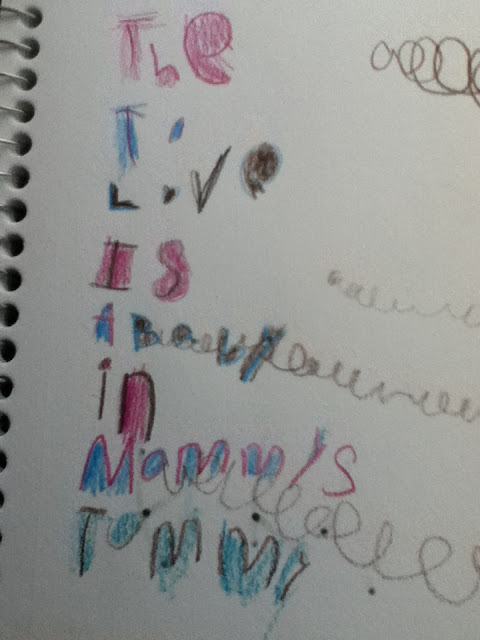 The
Ti
Live
IS
A Baby
in
Mammy's
Tummy